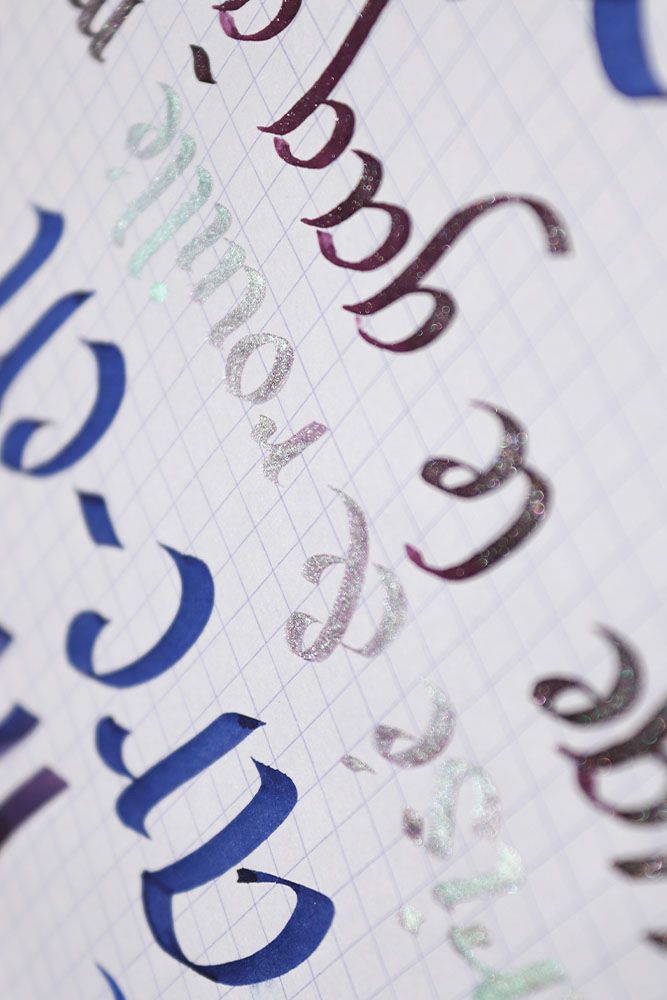 arc-en
risé & rouillé
uge le gag